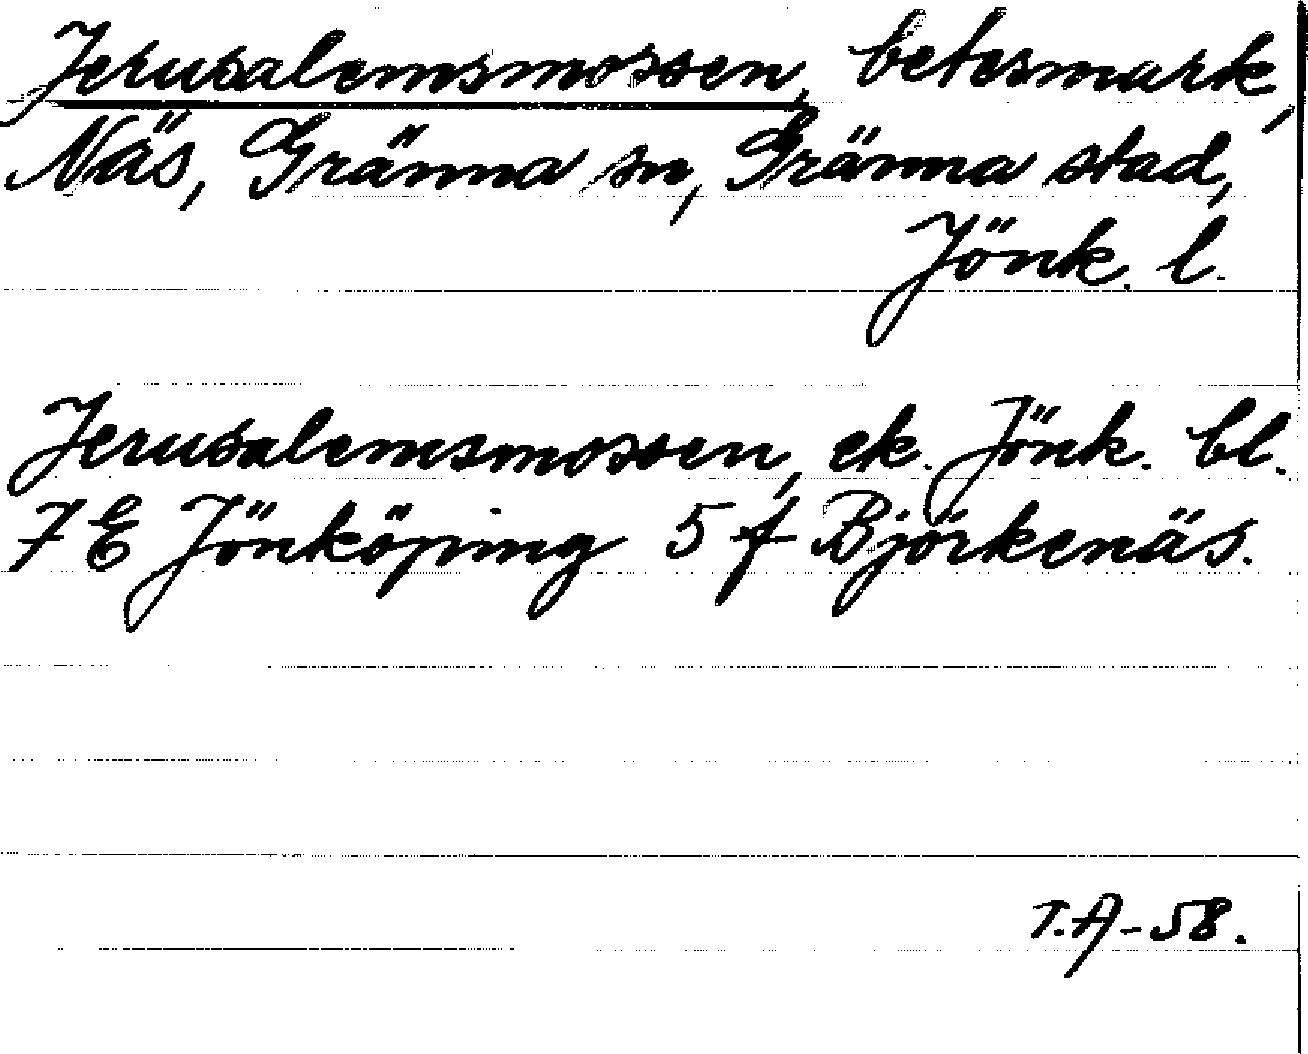 Jerusalemsmossen, betesmark,
Näs, Gränna sn, Gränna stad,
Jönk. l.
Jerusalemsmossen, ek. Jönk. bl.
7 E Jönköping 5 f Björkenäs.
T.A-58.